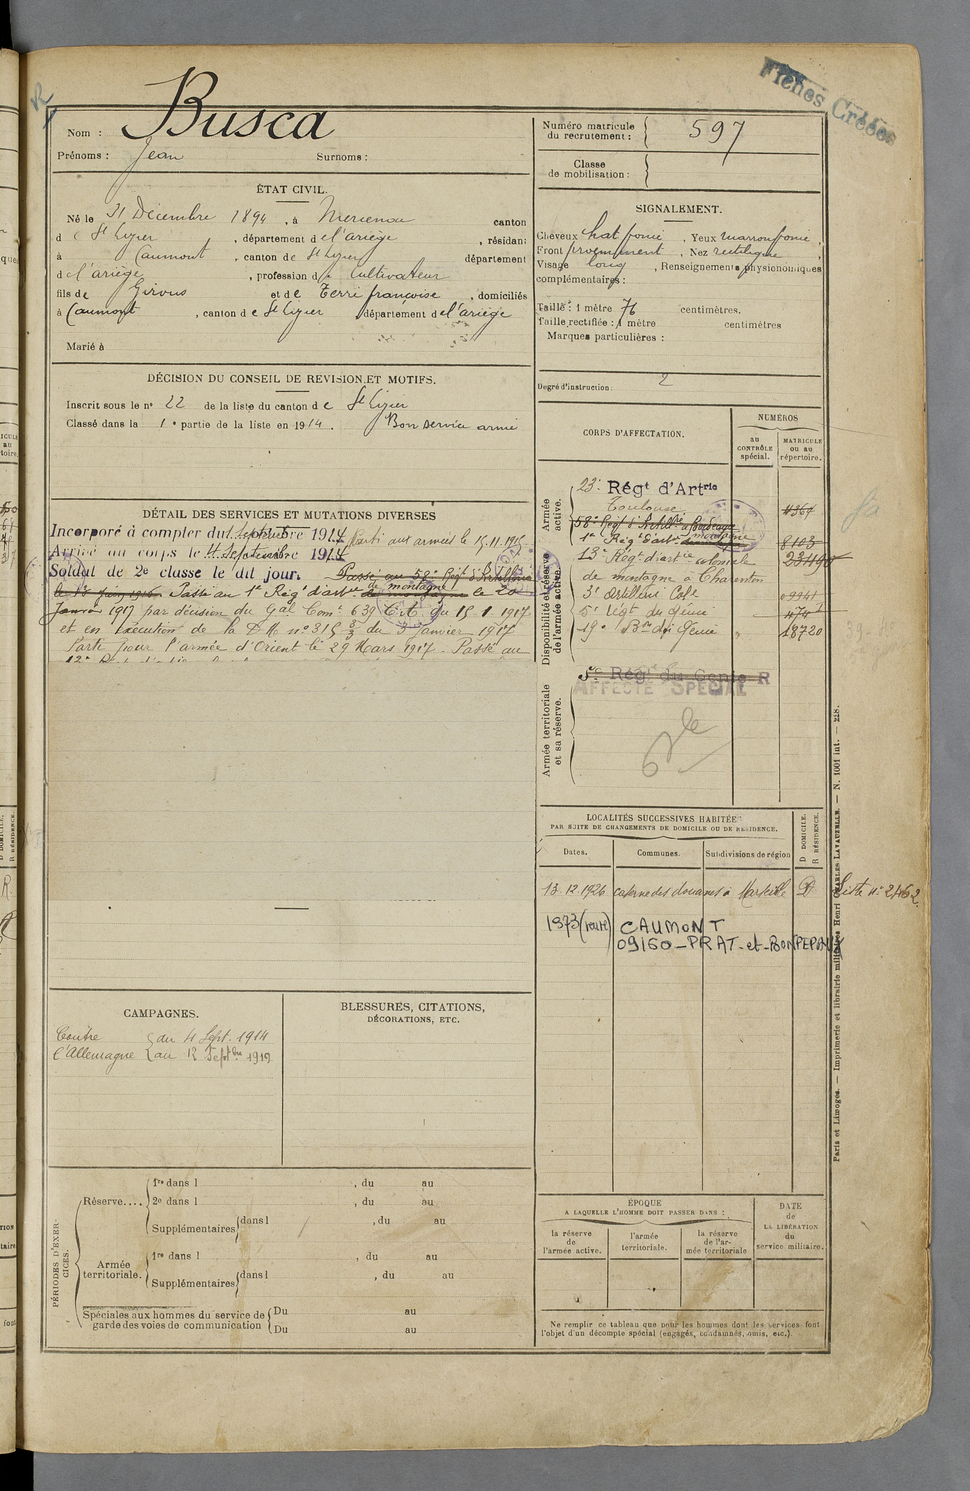 Fiches Créées
Nom : Busca
Prénoms : Jean Surnoms :
Numéro matricule du recrutement : 597
Classe de mobilisation :
ÉTAT CIVIL.
Né le 21 Décembre 1894, à Mercenac canton
d e St Lizier, département d e l'ariège, résidant
à Caumont, canton de St Lizier département
d e l'ariège, profession de Cultivateur
fils de Girons et de Terré françoise, domiciliés
à Caumont, canton d e St Lizier, département d e l'ariège
Marié à
SIGNALEMENT.
Cheveux chat foncé, Yeux marron foncé,
Front proéminent, Nez rectiligne
Visage long, Renseignements physionomiques
complémentaires :
Taille : 1 mètre 76 centimètres.
Taille rectifiée : 1 mètre centimètres
Marques particulières :
Degré d'instruction : 2
DÉCISION DU CONSEIL DE REVISION ET MOTIFS.
Inscrit sous le n° 22 de la liste du canton d e St Lizier
Classé dans la 1e partie de la liste en 1914. Bon service armé
CORPS D'AFFECTATION.
NUMÉROS
AU CONTRÔLE spécial.
MATRICULE OU AU répertoire.
Armée active.
23e Régt d'Artrie
Toulouse 4367
58e Régt d'Artillie à Bordeaux
1er Rég. d'arte de montagne 8103
Disponibilité et réserve de l'armée active.
13e Régt d'artie coloniale 23490
de montagne à Charenton
3e Artillerie Cole
5e Régt du Génie
19e Bon du Génie 18720
Armée territoriale et sa réserve.
5e Régt du Génie R
AFFECTÉ SPÉCIAL
DÉTAIL DES SERVICES ET MUTATIONS DIVERSES
Incorporé à compter du 4 Septembre 1914 Parti aux armées le 15.11.1915
Arrivé au corps le 4 Septembre 1914
Soldat de 2e classe le dit jour. Passé au 58e Régt d'Artillerie
le 13 Juin 1916. Passé au 1er Rég. d'artie de montagne le 20
Janvier 1917 par décision du Gal Comt 639 C.A. du 15.1.1917
et en exécution de la D.M. n° 315 3/3 du 3 Janvier 1917
Parti pour l'armée d'Orient le 29 Mars 1917. Passé au
LOCALITÉS SUCCESSIVES HABITÉES
PAR SUITE DE CHANGEMENTS DE DOMICILE OU DE RÉSIDENCE.
Dates. Communes. Subdivisions de région D DOMICILE. R RÉSIDENCE.
13.12.1926 caserne des douanes à Marseille D Liste n° 2462
1973 CAUMONT
09160-PRAT-et-BONREPAUX
CAMPAGNES.
Contre du 4 Sept. 1914
l'Allemagne au 12 Septbre 1919
BLESSURES, CITATIONS,
DÉCORATIONS, ETC.
PÉRIODES D'EXERCICES.
Réserve....
1re dans l , du au
2e dans l , du au
Supplémentaires dans l , du au
Armée territoriale.
1re dans l , du au
Supplémentaires dans l , du au
Spéciales aux hommes du service de garde des voies de communication
Du au
Du au
ÉPOQUE
A LAQUELLE L'HOMME DOIT PASSER DANS :
la réserve de l'armée active.
l'armée territoriale.
la réserve de l'armée territoriale
DATE de LA LIBÉRATION du service militaire.
Ne remplir ce tableau que pour les hommes dont les services font
l'objet d'un décompte spécial (engagés, condamnés, omis, etc.).
Paris et Limoges. — Imprimerie et librairie militaires Henri CHARLES-LAVAUZELLE. — N. 1001 int. — 228.